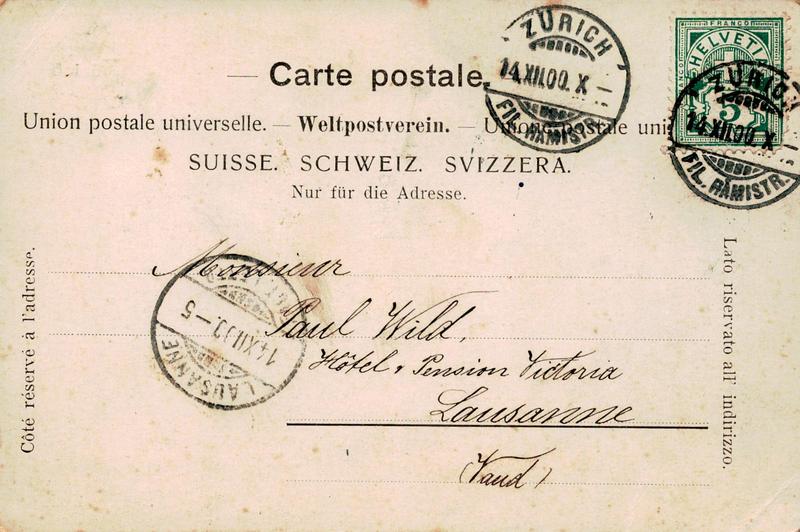 Carte postale.
Union postale universelle. — Weltpostverein. — Union postale uni
SUISSE. SCHWEIZ. SVIZZERA.
Nur für die Adresse.
ZÜRICH
14.XII.00.X
FIL. RÄMISTR.
FRANCO
HELVETIA
5
ZÜRICH
14.XII.00.X
FIL. RÄMISTR.
Côté réservé à l'adresse.
Lato riservato all' indirizzo.
Monsieur
Paul Wild,
Hôtel & Pension Victoria
Lausanne
(Vaud)
14.XII.00.–5
LAUSANNE